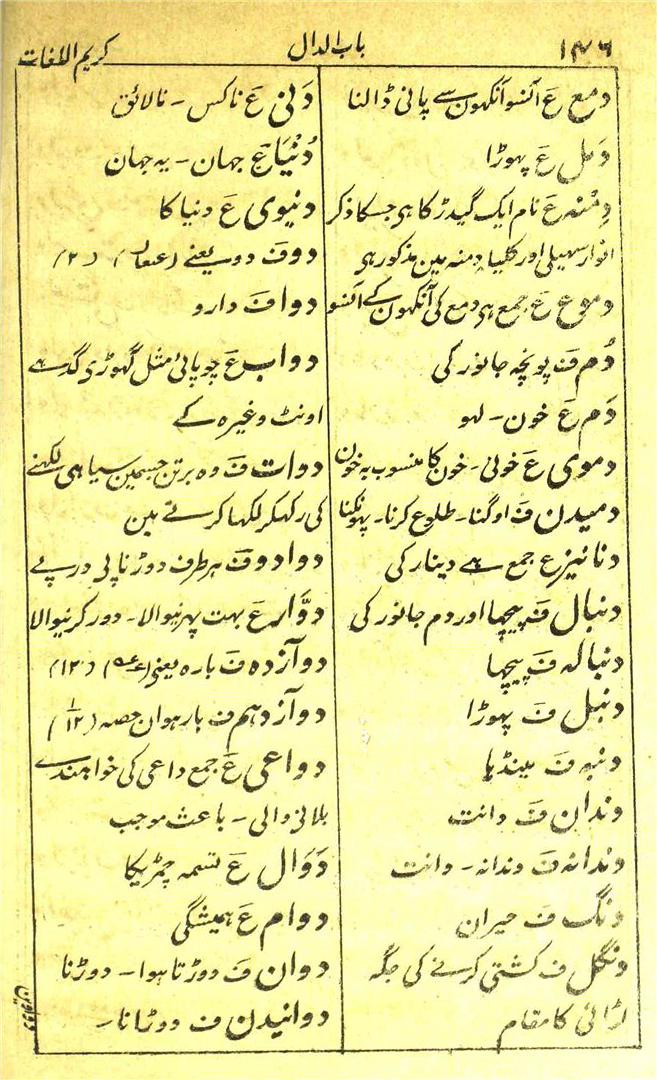 ۱۴۶
باب الدال
کریم اللغات
دمع عَ آنسو آنکھون سے پانی ڈالنا
دُمل عَ پھوڑا
دِمْنہ عَ نام ایک گیدڑ کا ہی جسکا ذکر
انوار سہیلی اور کلیلہ دمنہ مین مذکور ہی
دموع عَ جمع ہی دمع کی آنکھون کے آنسو
دُم فَ پونچھ جانور کی
دَم عَ خون۔ لہو
دموی عَ خونی۔ خون کا منسوب بہ خون
دمیدن فَ اوگنا۔ طلوع کرنا۔ پھونکنا
دنانیر عَ جمع ہے دینار کی
دنبال فَ پیچھا اور دم جانور کی
دنبالہ فَ پیچھا
دنبل فَ پھوڑا
دنبہ فَ مینڈھا
دندان فَ دانت
دندانہ فَ دندانہ۔ دانت
دنگ فَ حیران
دنگل ف کشتی کرنے کی جگہ
لڑائی کا مقام
دَنی عَ ناکس۔ نالائق
دُنْیَا عَ جہان۔ یہ جہان
دنیوی عَ دنیا کا
دو فَ دو یعنے (۲)
دوا فَ دارو
دواب عَ چوپائے مثل گھوڑی گدہے
اونٹ وغیرہ کے
دوات فَ وہ برتن جسمین سیاہی لکھنے
کی رکھکر لکھا کرتے ہین
دوادو فَ ہر طرف دوڑنا پی درپے
دوّار عَ بہت پھرنیوالا۔ دور کرنیوالا
دوآزدہ فَ بارہ یعنی (۱۲)
دوآزدہم ف بارہوان حصہ (۱/۱۲)
دواعی عَ جمع داعی کی خواہندے
بلانی والی۔ باعث موجب
دَوَال عَ تسمہ چمڑیکا
دوام عَ ہمیشگی
دوان فَ دوڑتا ہوا۔ دوڑنا
دوانیدن ف دوڑانا۔